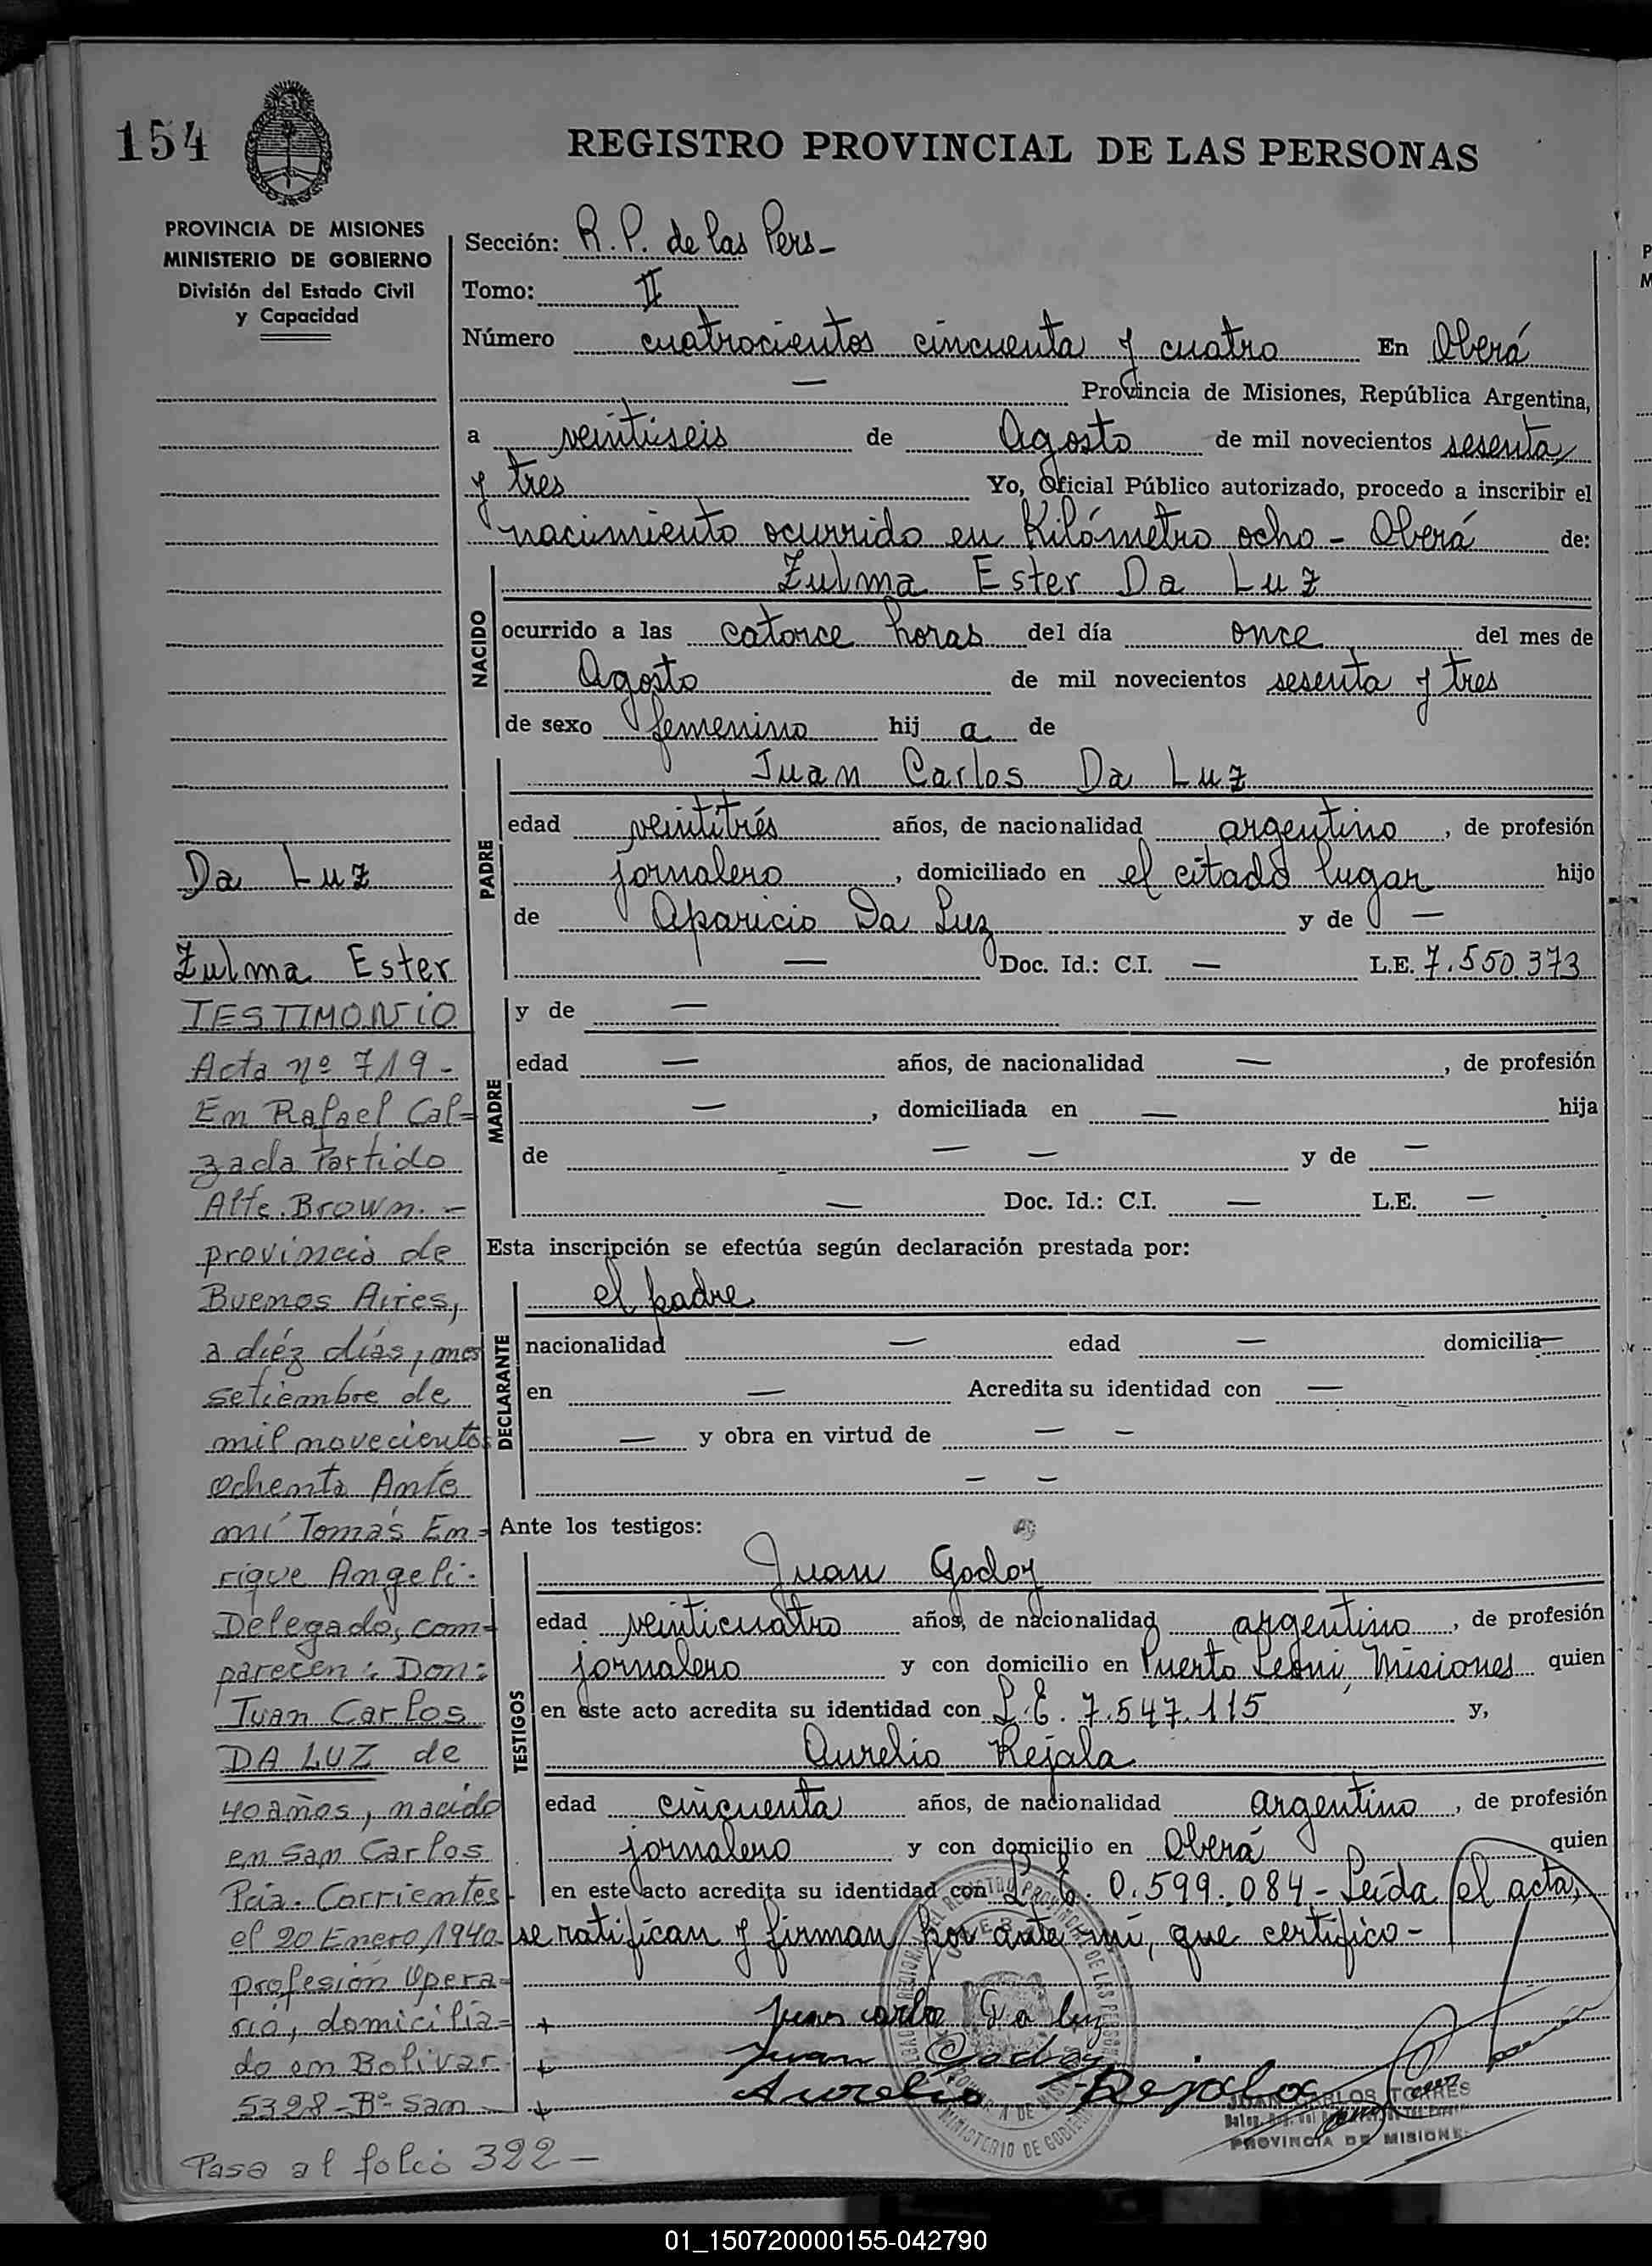 154
REGISTRO PROVINCIAL DE LAS PERSONAS
PROVINCIA DE MISIONES
MINISTERIO DE GOBIERNO
División del Estado Civil
y Capacidad
Sección: R. P. de las Pers-
Tomo: II
Número cuatrocientos cincuenta y cuatro En Oberá
— Provincia de Misiones, República Argentina,
a veintiseis de Agosto de mil novecientos sesenta
y tres Yo, Oficial Público autorizado, procedo a inscribir el
nacimiento ocurrido en Kilómetro ocho - Oberá de:
NACIDO
Zulma Ester Da Luz
ocurrido a las catorce horas del día once del mes de
Agosto de mil novecientos sesenta y tres
de sexo femenino hij a de
PADRE
Juan Carlos Da Luz
edad veintitrés años, de nacionalidad argentino, de profesión
jornalero, domiciliado en el citado lugar hijo
de Aparicio Da Luz y de —
— Doc. Id.: C.I. — L.E. 7.550.373
MADRE
y de —
edad — años, de nacionalidad —, de profesión
—, domiciliada en — hija
de — — y de —
— Doc. Id.: C.I. — L.E. —
Esta inscripción se efectúa según declaración prestada por:
DECLARANTE
el padre
nacionalidad — edad — domicilia—
en — Acredita su identidad con —
— y obra en virtud de — —
— —
Ante los testigos:
TESTIGOS
Juan Godoy
edad veinticuatro años, de nacionalidad argentino, de profesión
jornalero y con domicilio en Puerto Leoni, Misiones quien
en este acto acredita su identidad con L.E. 7.547.115 y,
Aurelio Rejala
edad cincuenta años, de nacionalidad argentino, de profesión
jornalero y con domicilio en Oberá quien
en este acto acredita su identidad con L.E. 0.599.084 - Leída el acta,
se ratifican y firman por ante mí, que certifico -
+ Juan carlo Da luz
+ Juan Godoy
+ Aurelio Rejala
JUAN CARLOS TORRES
PROVINCIA DE MISIONES
MINISTERIO DE GOBIERNO
Da Luz
Zulma Ester
TESTIMONIO
Acta nº 719-
En Rafael Cal=
zada Partido
Alte. Brown. -
provincia de
Buenos Aires,
a diéz días, mes
setiembre de
mil novecientos
ochenta Ante
mí Tomás En=
rique Angeli-
Delegado, com=
parecen: Don:
Juan Carlos
DA LUZ de
40 años, nacido
en San Carlos
Pcia. Corrientes
el 20 Enero 1940
profesión Opera=
rio, domicilia=
do en Bolivar
5328-Bº San
Pasa al folio 322 -
01_150720000155-042790